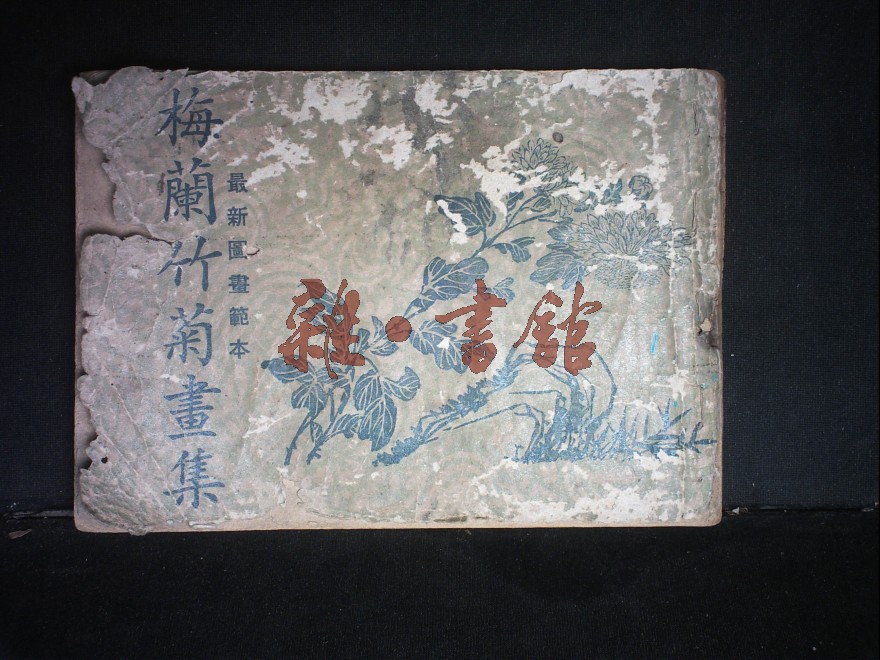 梅蘭竹菊畫集
最新圖畫範本
雜·書館